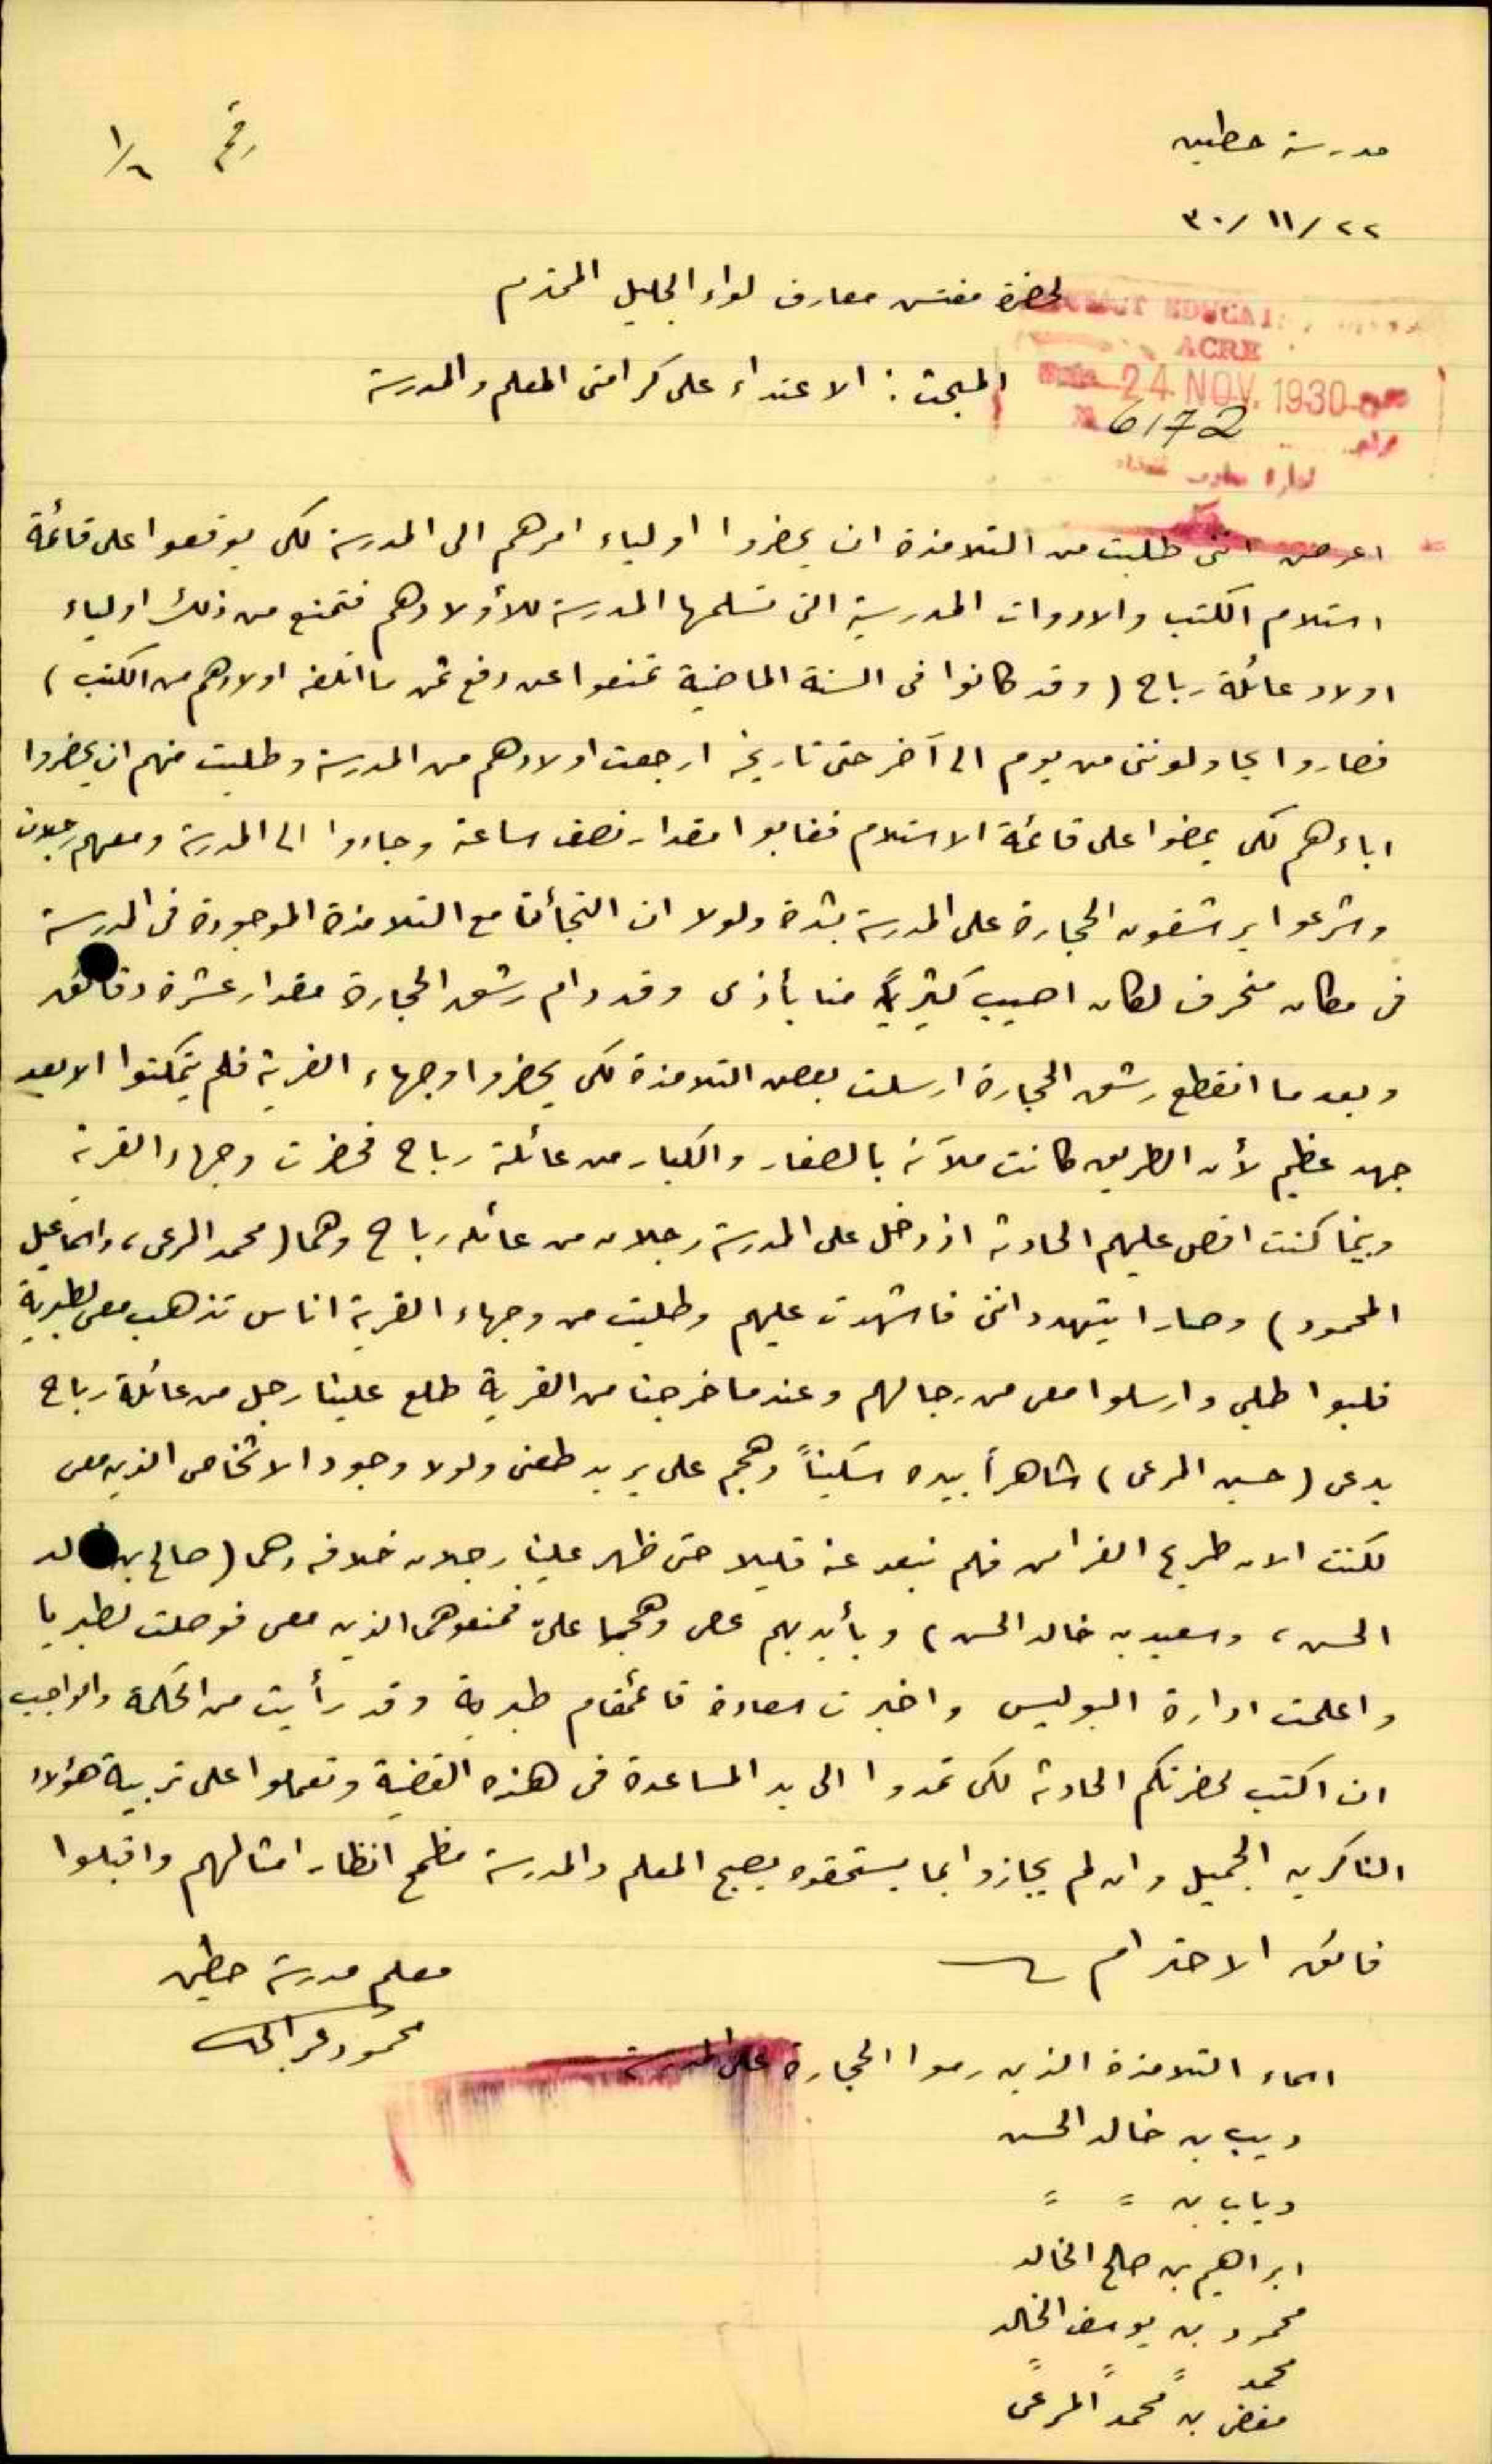 مدرسة حطين
رقم ١/٦
٢٢/ ١١/ ٣٠
لحضرة مفتش معارف لواء الجليل المحترم
ACRE
24 NOV. 1930
6172
المبحث : الاعتداء على كرامتى المعلم والمدرسة
اعرض اننى طلبت من التلامذة ان يحضروا اولياء امرهم الى المدرسة لكى يوقعوا على قائمة
استلام الكتب والادوات المدرسية التى تسلمها المدرسة للأولادهم فتمنع من ذلك اولياء
اولاد عائلة رباح ( وقد كانوا فى السنة الماضية تمنعوا عن دفع ثمن ما اتلفه اولادهم من الكتب )
فصاروا يحاولوننى من يوم الى آخر حتى تاريخه ارجعت اولادهم من المدرسة وطلبت منهم ان يحضروا
اباءهم لكى يمضوا على قائمة الاستلام فغابوا مقدار نصف ساعة وجاءوا الى المدرسة ومعهم رجلان
وشرعوا يرشقون الحجارة على المدرسة بشدة ولولا ان التجأنا مع التلامذة الموجودة فى المدرسة
فى مكان منحرف لكان اصيب كثير منا بأذى وقد دام رشق الحجارة مقدار عشرة دقائق
وبعد ما انقطع رشق الحجارة ارسلت بعض التلامذة لكى يحضروا وجهاء القرية فلم يتمكنوا الا بعد
جهد عظيم لأن الطريق كانت ملآنة بالصغار والكبار من عائلة رباح فحضرت وجهاء القرية
وبينما كنت اقص عليهم الحادثة اذ دخل على المدرسة رجلان من عائلة رباح وهما ( محمد المرعى ، واسماعيل
المحمود ) وصارا يتهددانى فاشهدت عليهم وطلبت من وجهاء القرية اناس تذهب معى لطبرية
فلبوا طلبى وارسلوا معى من رجالهم وعندما خرجنا من القرية طلع علينا رجل من عائلة رباح
يدعى ( حسين المرعى ) شاهراً بيده سكيناً وهجم على يريد طعنى ولولا وجود الاشخاص الذين معى
لكنت الان طريح الفراش فلم نبعد عنه قليلا حتى ظهر علينا رجلان خلافه وهما ( صالح بن خالد
الحسن ، وسعيد بن خالد الحسن ) وبأيديهم عصى وهجما علىّ فمنعوهما الذين معى فوصلت لطبريا
واعلمت ادارة البوليس واخبرت سعادة قائمقام طبرية وقد رأيت من الحكمة والواجب
ان اكتب لحضرتكم الحادثة لكى تمدوا الى يد المساعدة فى هذه القضية وتعملوا على تربية هؤلاء
الناكرين الجميل وان لم يجازوا بما يستحقوه يصبح المعلم والمدرسة مطمح انظار امثالهم واقبلوا
فائق الاحترام
معلم مدرسة حطين
محمود
اسماء التلامذة الذين رموا الحجارة على المدرسة
ديب بن خالد الحسن
دياب بن = =
ابراهيم بن صالح الخالد
محمود بن يوسف الخالد
محمد = = =
مفضى بن محمد المرعى